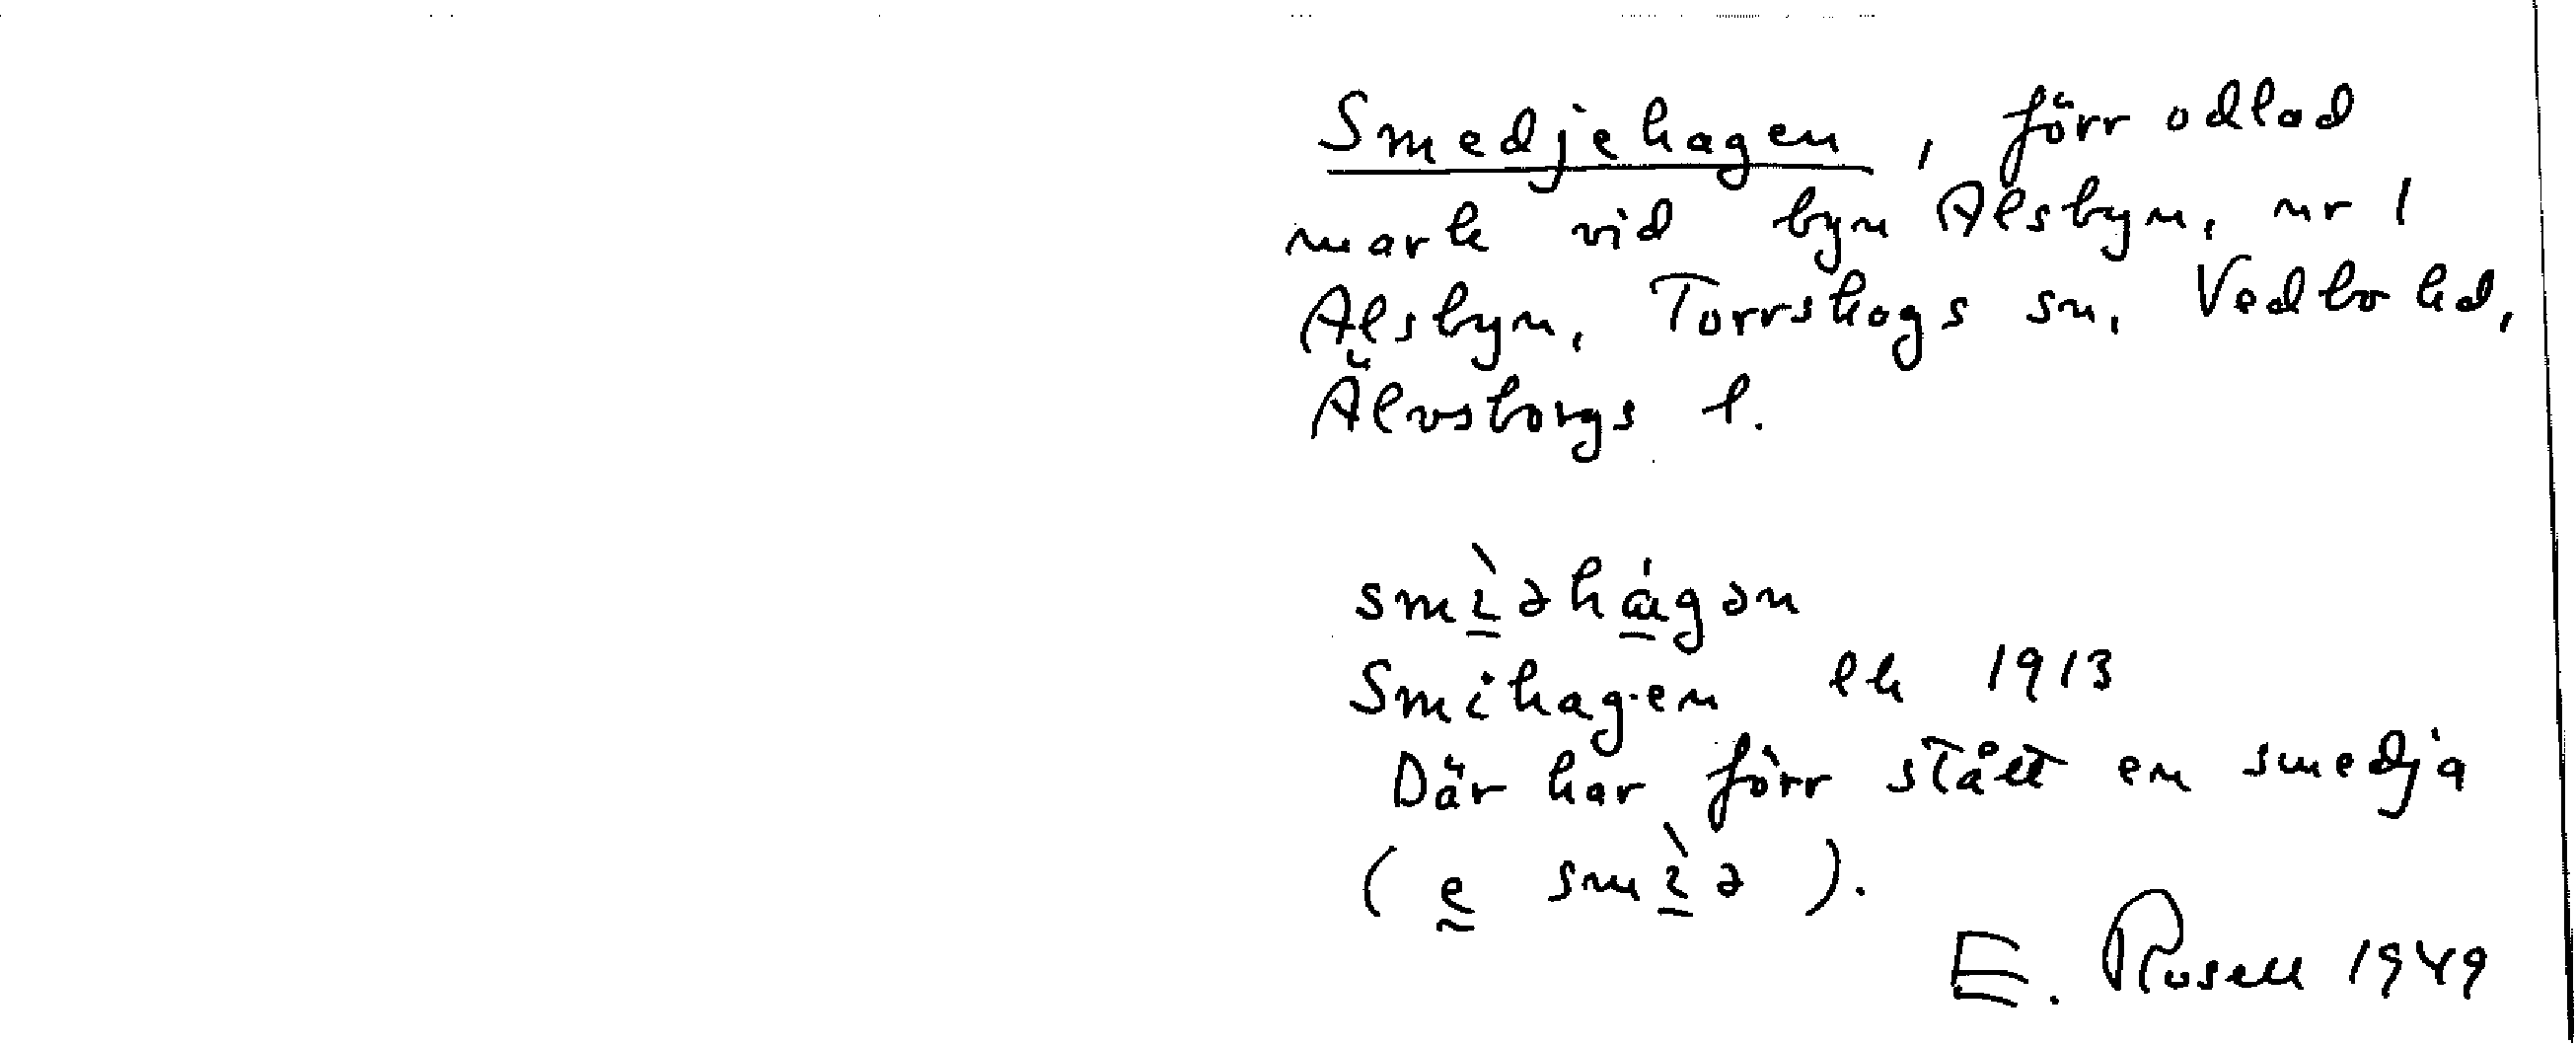 Smedjehagen, förr odlad
mark vid byn Alsbyn, nr 1
Alsbyn, Torrskogs sn, Vedbo hd,
Älvsborgs l.
smìəhágən
Smihagen ek 1913
Där har förr stått en smedja
(e smìə).
E. Rosell 1949